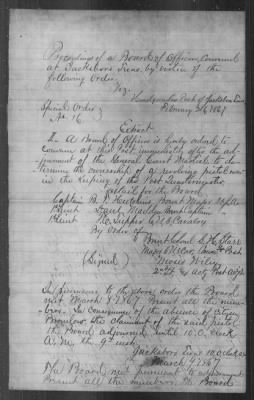 Proceedings of a Board of Officers, Convened
at Jacksboro Texas, by virtue of the
following Order,
Viz.
Headquarters Post of Jacksboro Texas
February 26 1867
Special Orders
No. 16
Extract
A Board of Officers is hereby ordered to
convene at this Post immediately after the ad-
journment of the General Court Martial to de-
termine the ownership of a revolving pistol now
in the keeping of the Post Quartermaster
detail for the Board
Captain B. T. Hutchins, Brevet Major
1 Lieut Daniel Madden Brevet Captain
2 Lieut A.C. Cavalry
By Order of
Brevet Colonel S. H. Starr
Major 6th U.S. Cav. Comm'd'g Post
(Signed) Moses Wiley
2nd Lt & Actg Post Adjt
In pursuance to the above order the Board
met March 8th 1867. Present all the mem-
bers. In consequence of the absence of
the claimant of the said pistol
the Board adjourned until 10 O.C. clock
A.M. the 9th inst.
Jacksboro Texas 10 o'clock A.M.
March 9 1867
The Board met pursuant to adjournment
Present all the members. The Board